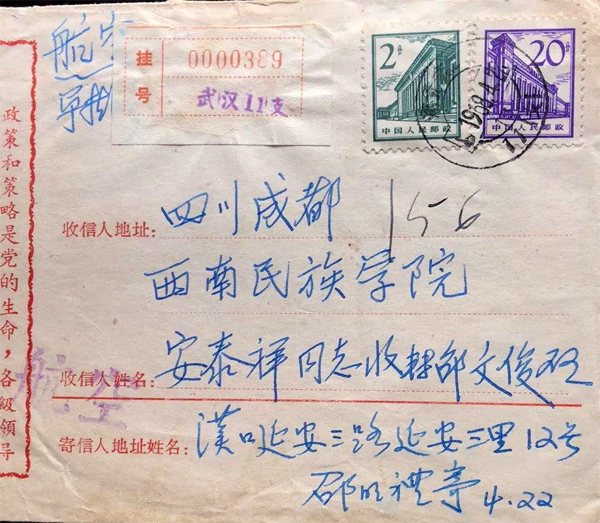 航空
挂号
0000389
武汉11支
2分
中国人民邮政
20分
中国人民邮政
1968.4.2
156
收信人地址: 四川成都
西南民族学院
收信人姓名: 安泰祥同志收轉邵文俊
寄信人地址姓名: 漢口延安三路延安三里12号
邵 禮寿 4.22
航空
政策和策略是党的生命，各級領导